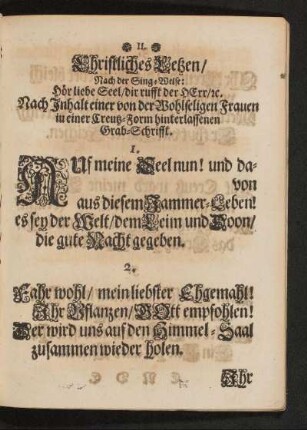 II.
Christliches Letzen/
Nach der Sing-Weise:
Hör liebe Seel/dir rufft der HErr/ꝛc.
Nach Inhalt einer von der Wohlseligen Frauen
in einer Creutz-Form hinterlassenen
Grab-Schrifft.
1.
AUf meine Seel nun! und da-
von
aus diesem Jammer-Leben!
es sey der Welt/dem Leim und Doon/
die gute Nacht gegeben.
2.
Fahr wohl/ mein liebster Ehgemahl!
Ihr Pflanzen/ GOtt empfohlen!
Der wird uns auf den Himmel-Saal
zusammen wieder holen.
Ihr